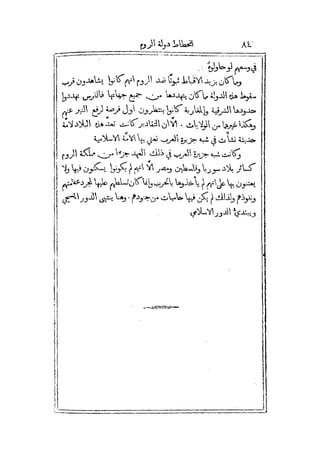 ٨٤ انحطاط دولة الروم
في وسعهم لو حاولوهُ
وما كان يزيد الاقباط ثبوتًا ضد الروم انهم كانوا يشاهدون قرب
سقوط هذه الدولة ما كان يتهددها من جميع جهاتها فالفرس يهددوا
حدودها الشرقية والمغاربة كانوا ينتظرون اول فرصة لرفع النير عنهم
وهكذا غيرها من الولايات ٠ الا ان التقادير كانت تعد هذه البلاد لامة
حديثة نشأت في شبه جزيرة العرب نعني بها الامة الاسلامية
وكانت شبه جزيرة العرب في ذلك العهد جزءا من مملكة الروم
كسائر بلاد سوريا وفلسطين ومصر الا انهم لم يكونوا يسكنون فيها ولا
يعتنون بها على انهم لم يأخذوها بالحرب وانما كان تسلطهم عليها لمجرد عظمتهم
ونفوذهم ولذلك لم يكن فيها حاميات من جنودهم ٠ وهنا ينتهي الدور المسيحي
ويبتدئ الدور الاسلامي